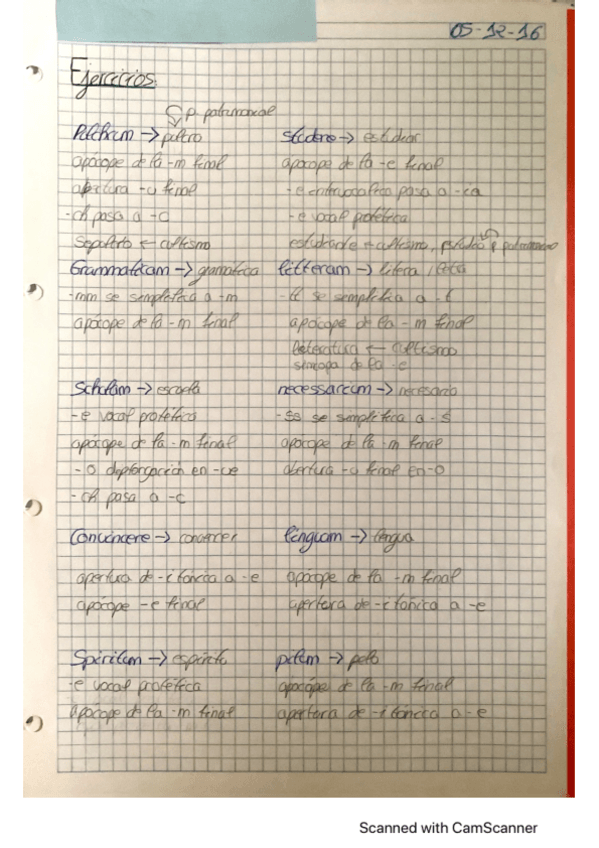 05-12-16
Ejercicios:
p. patrimonial
Pulchrum → pulcro
apócope de la -m final
apertura -u final
-ch pasa a -c
Sepulcro ← cultismo
Studere → estudiar
apocope de la -e final
-e vocal protética
estudiante ← cultismo, patrimonio
Grammaticam → gramática
-mm se simplifica a -m
apócope de la -m final
litteram → litera / letra
-tt se simplifica a -t
apócope de la -m final
literatura ← cultismo
síncopa de la -e
Scholam → escuela
-e vocal protética
apócope de la -m final
-o diptongación en -ue
-ch pasa a -c
necessarium → necesario
-ss se simplifica a -s
apócope de la -m final
abertura -u final en -o
Convincere → convencer
apertura de -i tónica a -e
apócope -e final
linguam → lengua
apócope de la -m final
apertura de -i tónica a -e
Spiritum → espíritu
-e vocal protética
apócope de la -m final
pilum → pelo
apócope de la -m final
apertura de -i tónica a -e
Scanned with CamScanner